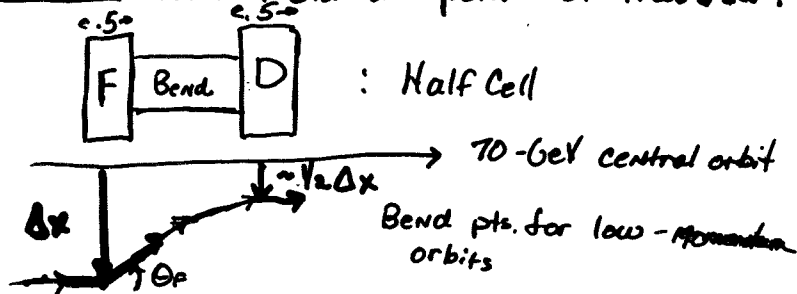 e.5→ e.5→
F Bend D : Half Cell
70-GeV central orbit
Δx ~1/2 Δx
Bend pts. for low-momentum
orbits
θF